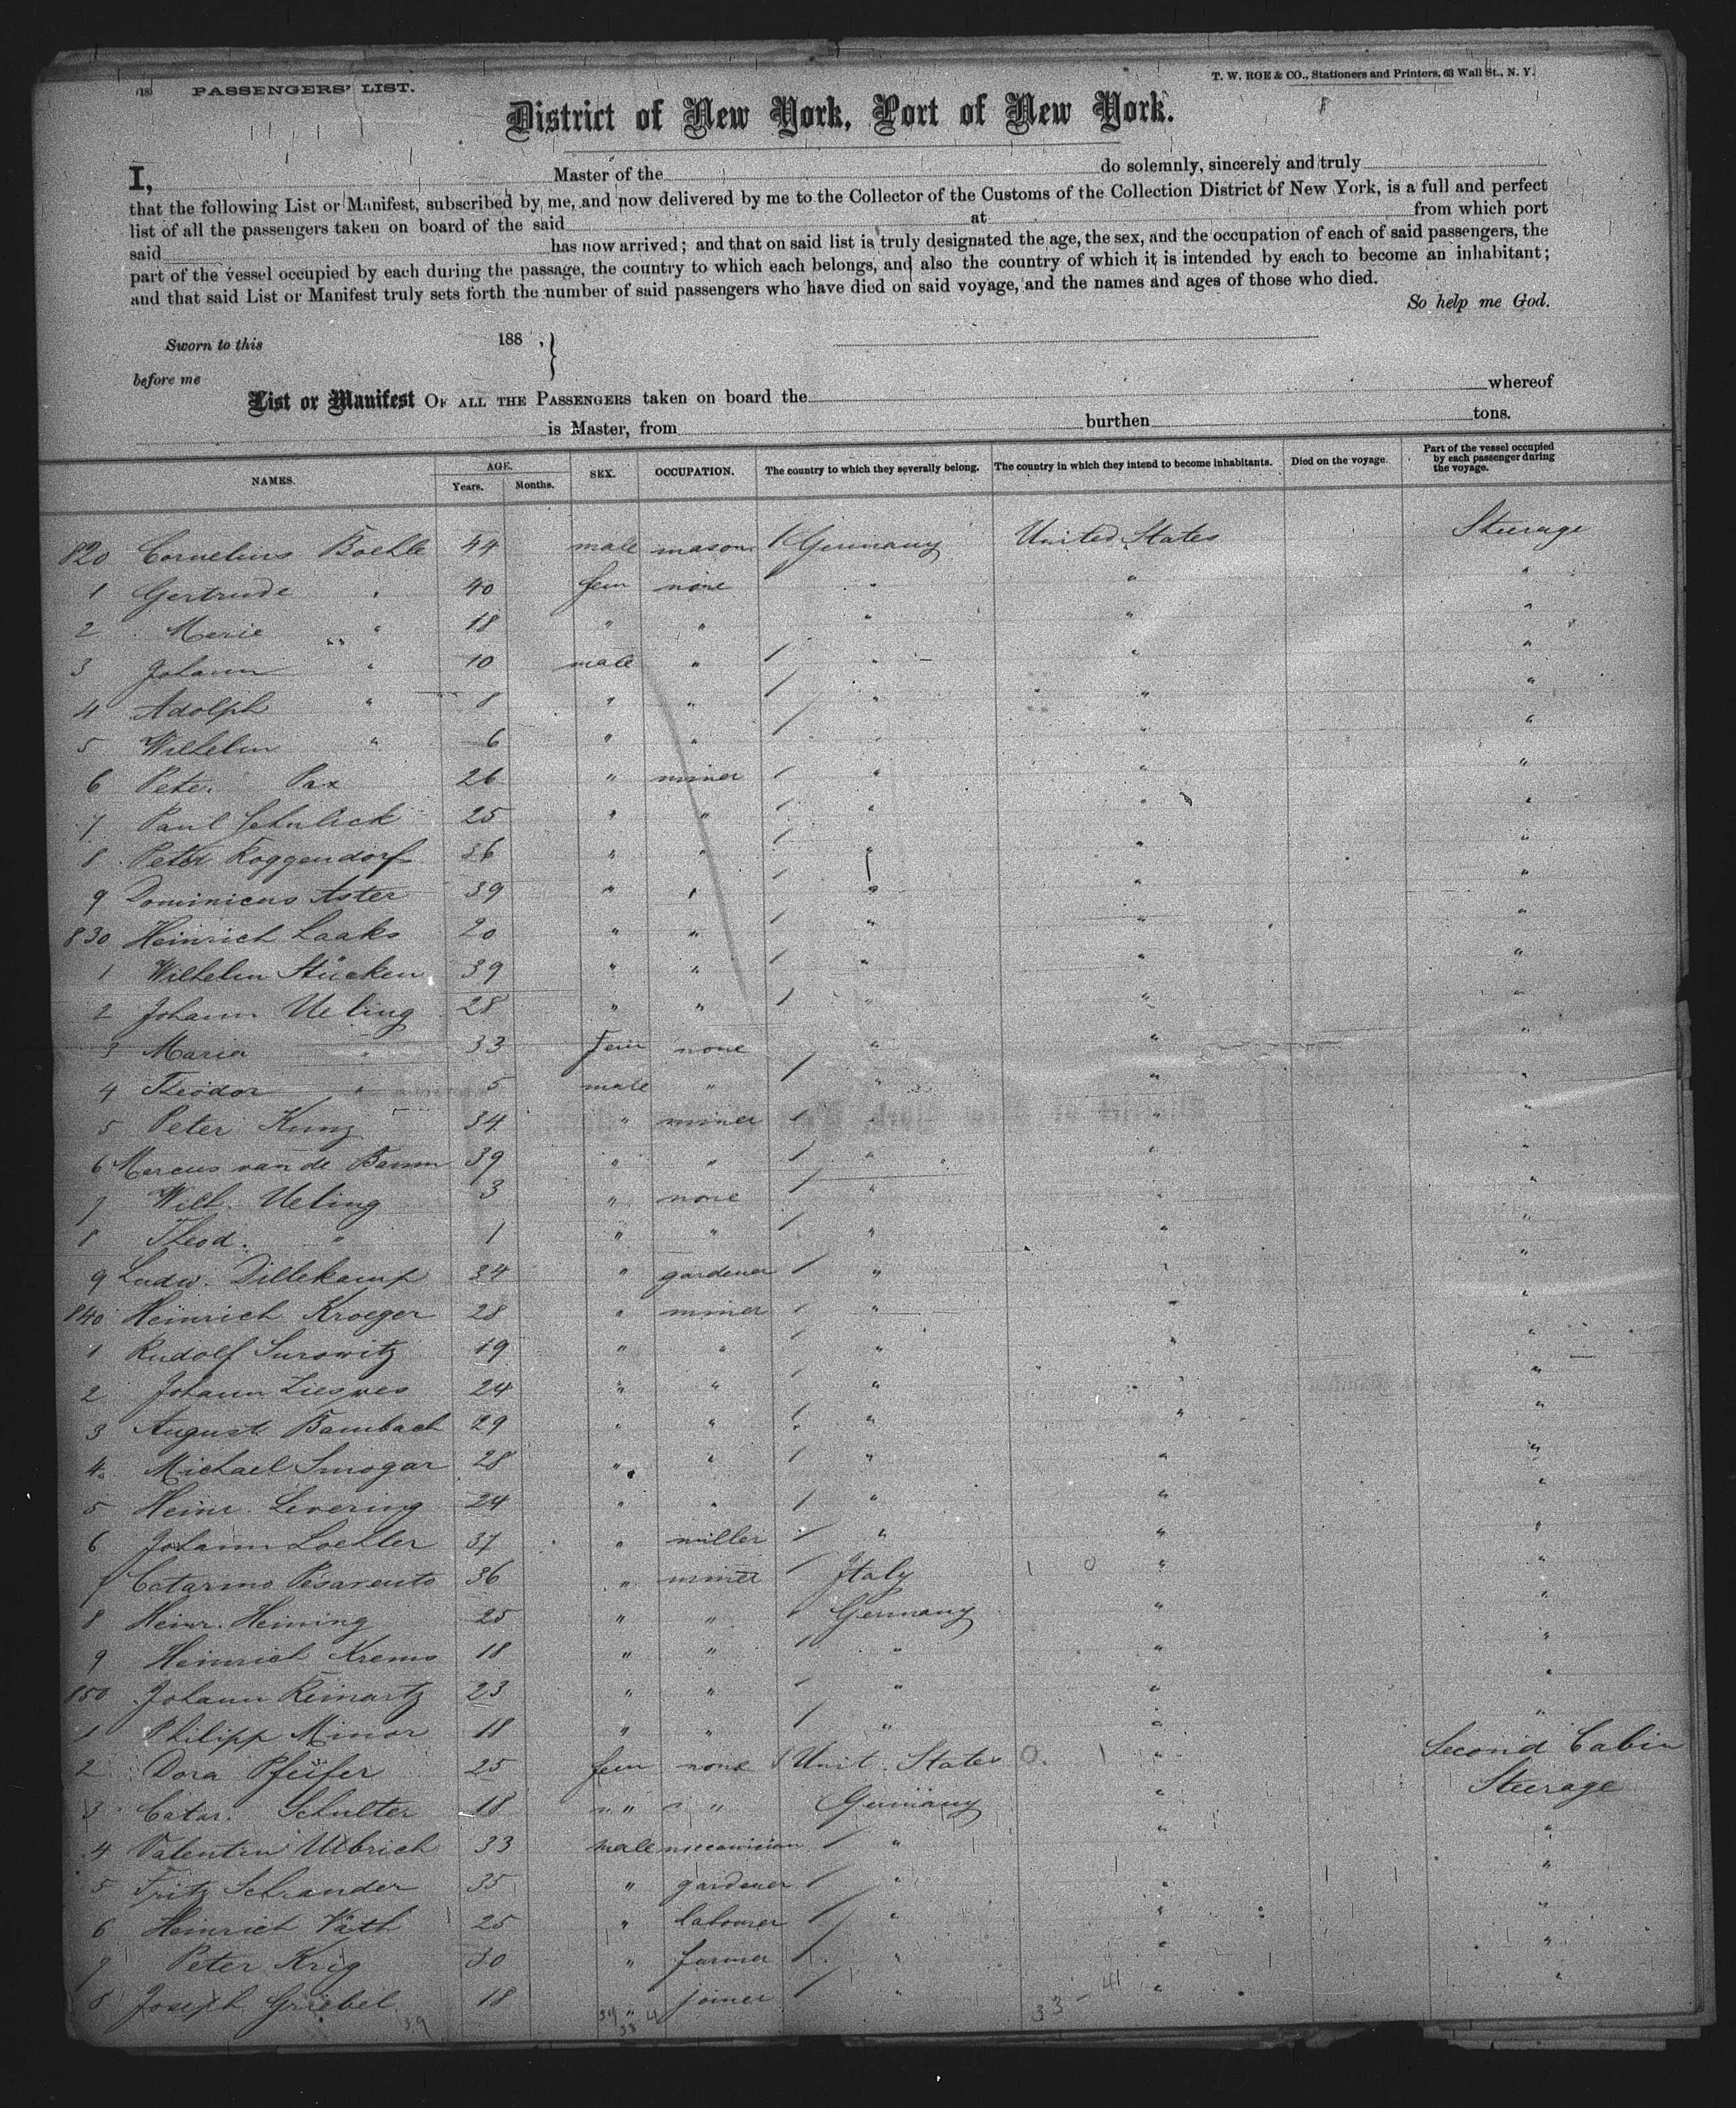 (18) PASSENGERS' LIST.
T. W. ROE & CO., Stationers and Printers, 63 Wall St., N. Y.
District of New York, Port of New York.
I, Master of the do solemnly, sincerely and truly
that the following List or Manifest, subscribed by me, and now delivered by me to the Collector of the Customs of the Collection District of New York, is a full and perfect
list of all the passengers taken on board of the said at from which port
said has now arrived; and that on said list is truly designated the age, the sex, and the occupation of each of said passengers, the
part of the vessel occupied by each during the passage, the country to which each belongs, and also the country of which it is intended by each to become an inhabitant;
and that said List or Manifest truly sets forth the number of said passengers who have died on said voyage, and the names and ages of those who died.
So help me God.
Sworn to this 188 , }
before me
List or Manifest OF ALL THE PASSENGERS taken on board the whereof
is Master, from burthen tons.
NAMES. AGE. Years. Months. SEX. OCCUPATION. The country to which they severally belong. The country in which they intend to become inhabitants. Died on the voyage. Part of the vessel occupied by each passenger during the voyage.
820 Cornelius Boehle 44 male mason 1 Germany United States Steerage
1 Gertrude " 40 fem none " " "
2 Marie " 18 " " " " "
3 Johann " 10 male " 1 " " "
4 Adolph " 8 " " 1 " " "
5 Wilhelm " 6 " " 1 " " "
6 Peter Pax 26 " miner 1 " " "
7 Paul 25 " " 1 " " "
8 Peter Roggendorf 36 " " 1 " " "
9 Dominicus Aster 39 " " 1 " " "
830 Heinrich Laaks 20 " " 1 " " "
1 Wilhelm Stücken 39 " " 1 " " "
2 Johann Ueling 28 " " 1 " " "
3 Maria " 33 Fem none " " "
4 Theodor " 5 male " 1 " " "
5 Peter Kunz 34 " miner 1 " " "
6 Marcus van de Bamm 39 " " 1 " " "
7 Wilh. Ueling 3 " none 1 " " "
8 Theod. " 1 " " 1 " " "
9 Ludw. Dillekamp 34 " gardener 1 " " "
840 Heinrich Kroeger 28 " miner 1 " " "
1 Rudolf Surowitz 19 " " 1 " " "
2 Johann 24 " " 1 " " "
3 August Bambach 29 " " 1 " " "
4 Michael Smogar 28 " " 1 " " "
5 Heinr. Levering 24 " " 1 " " "
6 Johann Loehler 37 " miller 1 " " "
7 Catarino Pesarento 36 " miner 1 Italy " "
8 Heinr. Heining 25 " " 1 Germany " "
9 Heinrich Krems 18 " " 1 " " "
850 Johann Reinartz 23 " " 1 " " "
1 Philipp Minor 18 " " 1 " " "
2 Dora Pfeifer 25 fem none 1 Unit. States 0. 1 " Second Cabin
3 Catar. Schulter 18 " " Germany " Steerage
4 Valentin Ulbrich 33 male mecanician 1 " " "
5 Fritz Schrander 35 " gardener 1 " " "
6 Heinrich Väth 25 " labourer 1 " " "
7 Peter Krig 30 " farmer 1 " " "
8 Joseph Griebel 18 " joiner 1 " " "
39 34 4 33 - 41
38